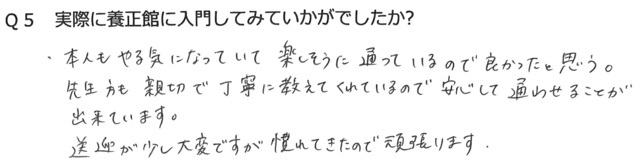 Q5 実際に養正館に入門してみていかがでしたか?
・本人もやる気になっていて楽しそうに通っているので良かったと思う。
先生方も親切で丁寧に教えてくれているので安心して通わせることが
出来ています。
送迎が少し大変ですが慣れてきたので頑張ります.